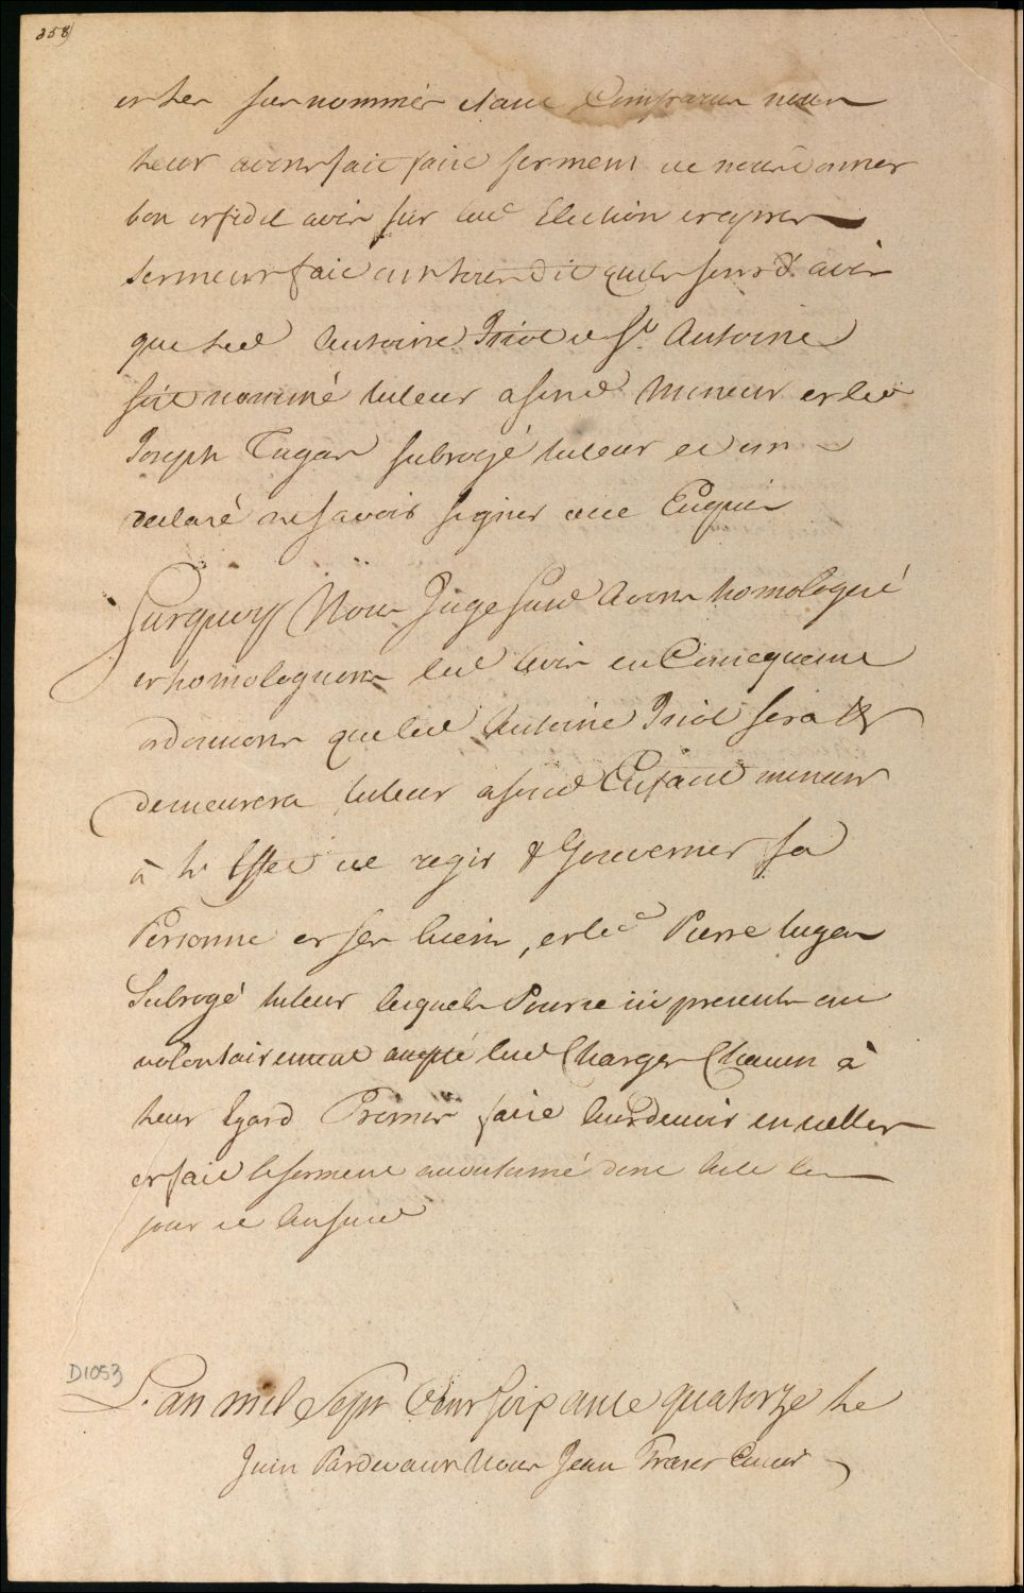 358
et les sus nommés étant Comparus nous
leur avons fait faire serment de nous donner
bon et fidel avis sur lad Election et après
serment fait ont tous dit qu'ils sont d'avis
que led Antoine Triot de St. Antoine
soit nommé tuteur a sond Mineur et led
Joseph Lugar subrogé tuteur et ont
declaré ne savoir signer de ce Enquis
Surquoy Nous Juge susd Avons homologué
et homologuons led avis en Concequence
ordonnons que led Antoine Triot sera &
demeurera tuteur a sond Enfant mineur
à L'Effet de regir & Gouverner sa
Personne et ses biens, et led Pierre Lugar
Subrogé tuteur lesquels Pour ce ici presents ont
volontairement accepté lesd Charges Chacun à
leur Egard Promis faire leur devoir en icelles
et fait le serment accoutumé dont acte les
jour et an susd
D1053
L'an mil Sept Cent soixante quatorze le
Juin Pardevant Nous Jean Fraser Ecuier